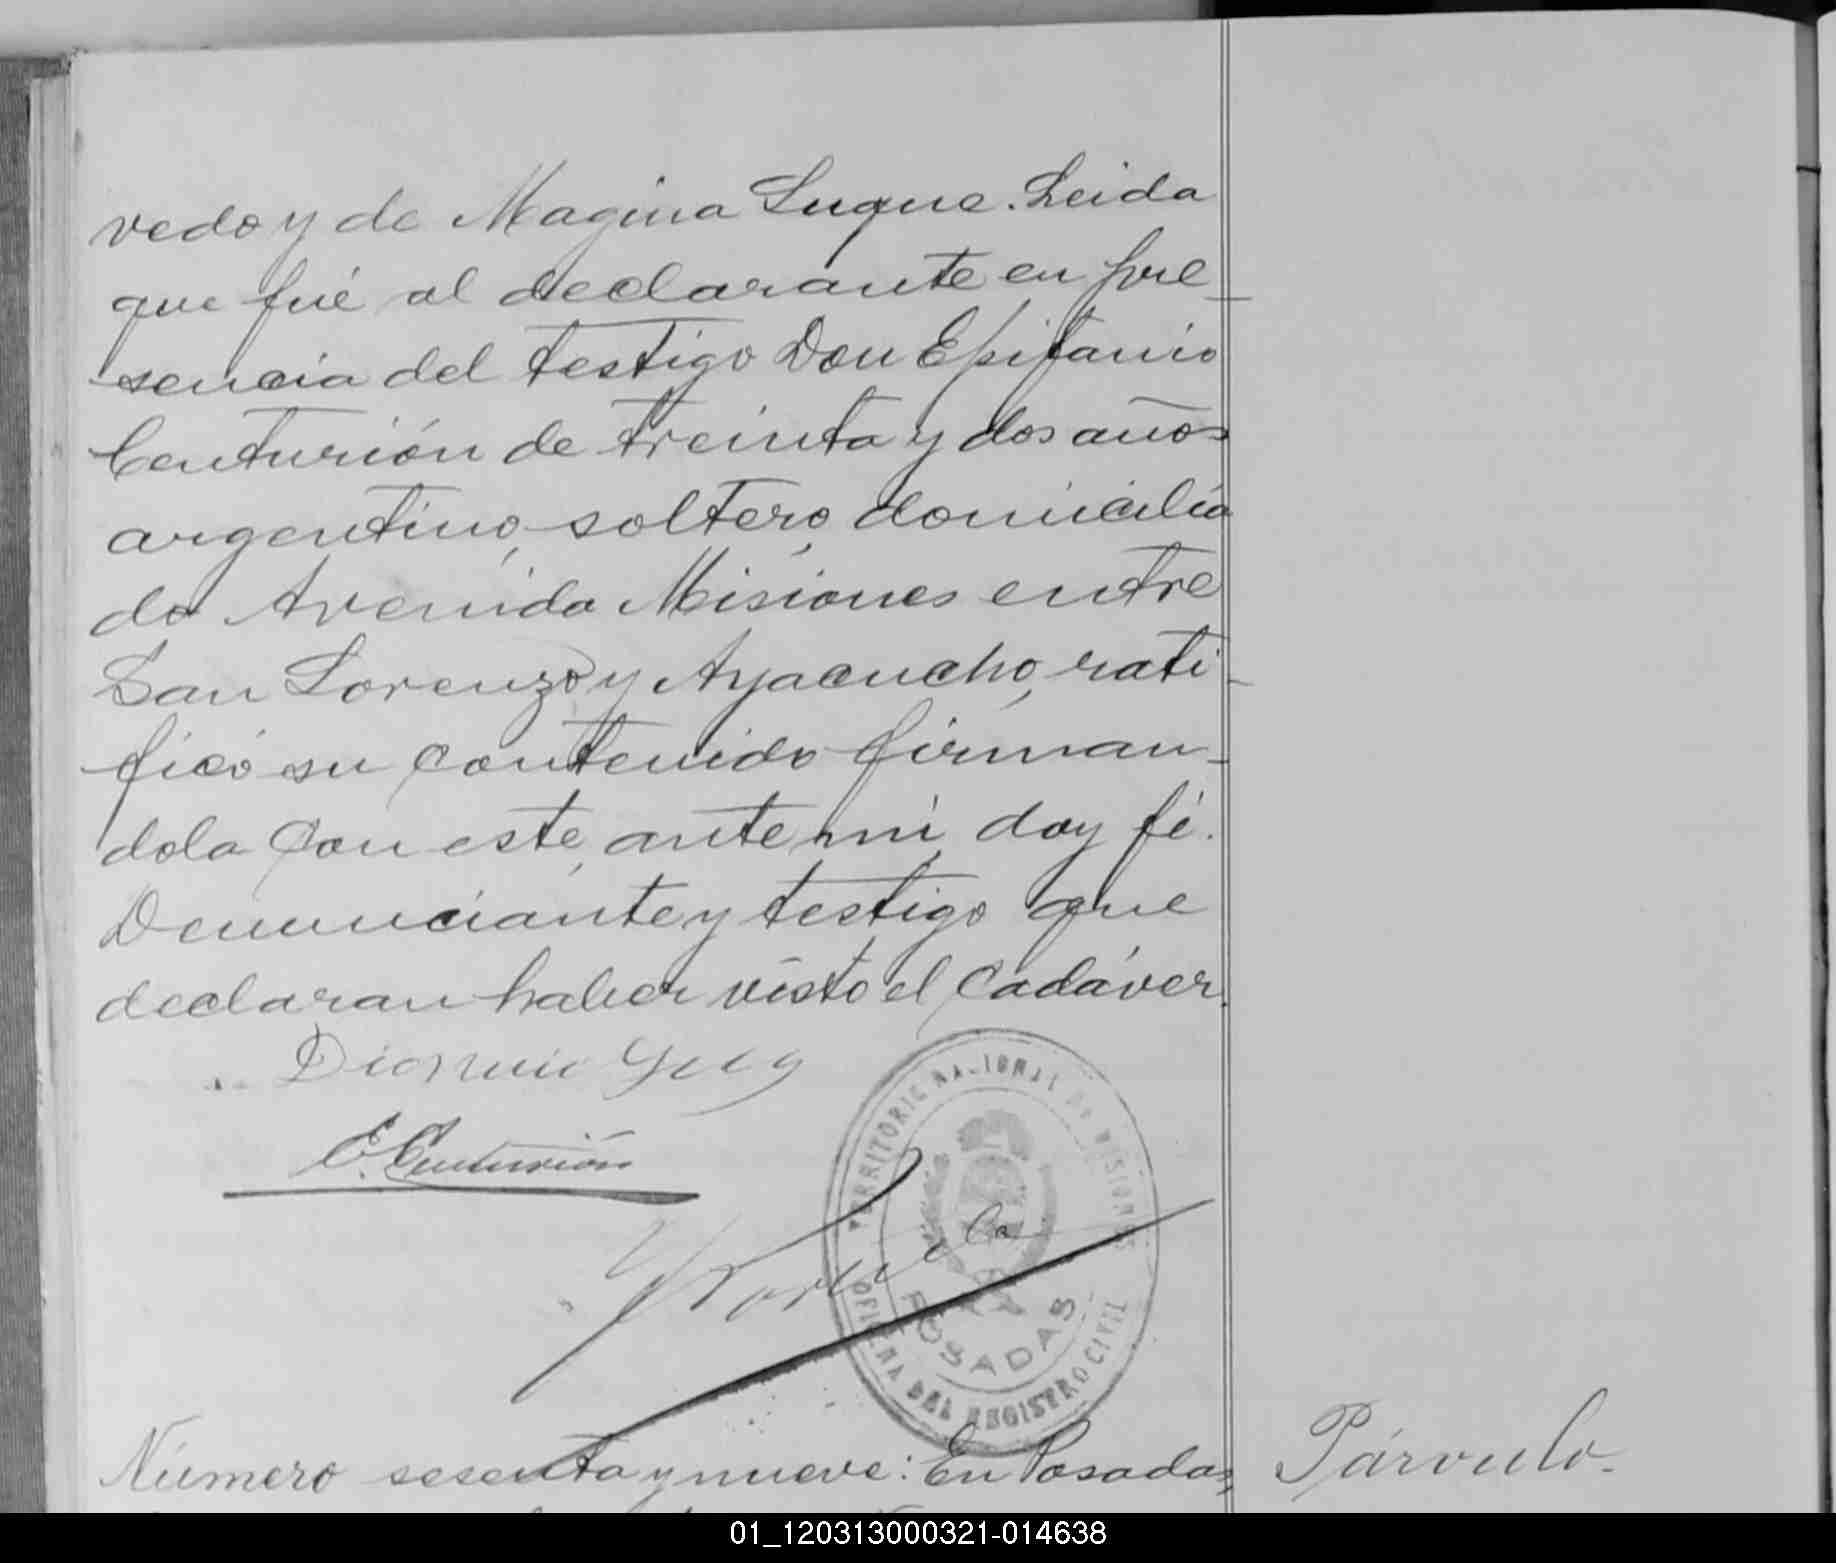 vedo y de Magina Luque. Leida
que fué al declarante en pre_
sencia del testigo Don Epifanio
Centurión de treinta y dos años
argentino, soltero, domicilia
do Avenida Misiones entre
San Lorenzo y Ayacucho, rati_
ficó su contenido firman_
dola con este, ante mi, doy fé.
Denunciante y testigo que
declaran haber visto el cadáver.
E. Centurión
TERRITORIO NACIONAL DE MISIONES
POSADAS
OFICINA DEL REGISTRO CIVIL
Número sesenta y nueve: En Posadas,
Párvulo.
01_120313000321-014638